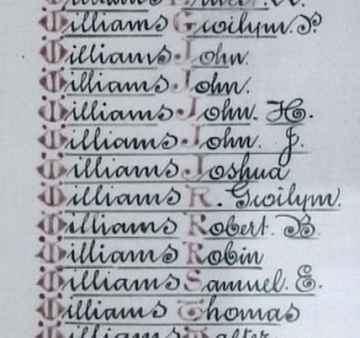 Williams Gwilym. P.
Williams John.
Williams John.
Williams John. H.
Williams John. J.
Williams Joshua
Williams R. Gwilym.
Williams Robert. B.
Williams Robin
Williams Samuel. E.
Williams Thomas
Williams Walter